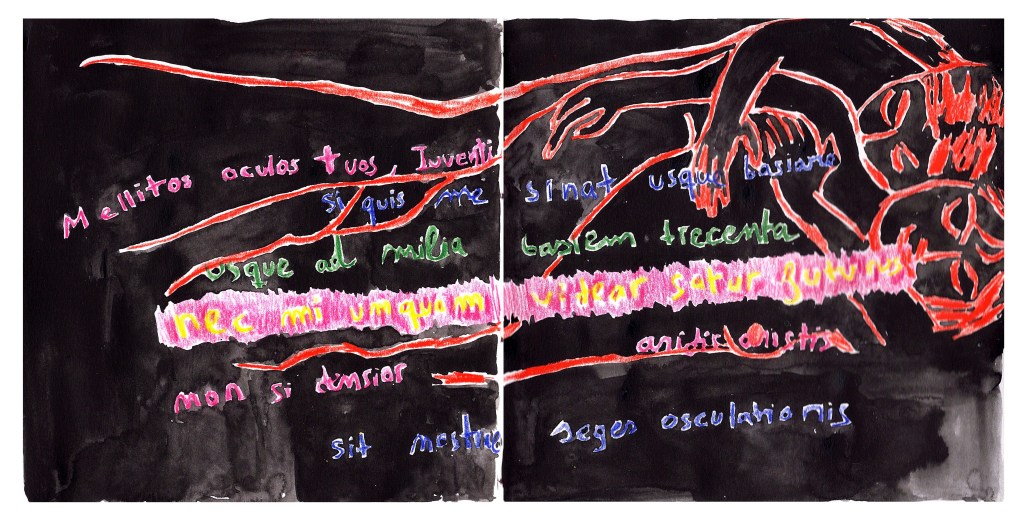 Mellitos oculos tuos, Iuventi
si quis me sinat usque basiare
usque ad milia basiem trecenta
nec mi umquam videar satur futurus
non si densior aridis aristis
sit nostrae seges osculationis